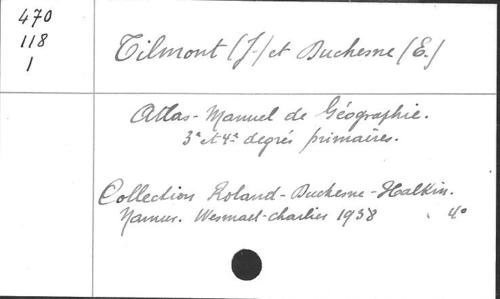 470
118
1
Tilmont (J.) et Duchesne (E.)
Atlas-Manuel de Géographie.
3e et 4e degrés primaires.
Collection Roland-Duchesne-Halkin.
Namur. Wesmael-charlier 1938 4°